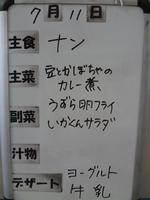 7月11日
主食 ナン
主菜 豆とかぼちゃの
カレー煮
副菜 うずら卵フライ
いかくんサラダ
汁物
デザート ヨーグルト
牛乳